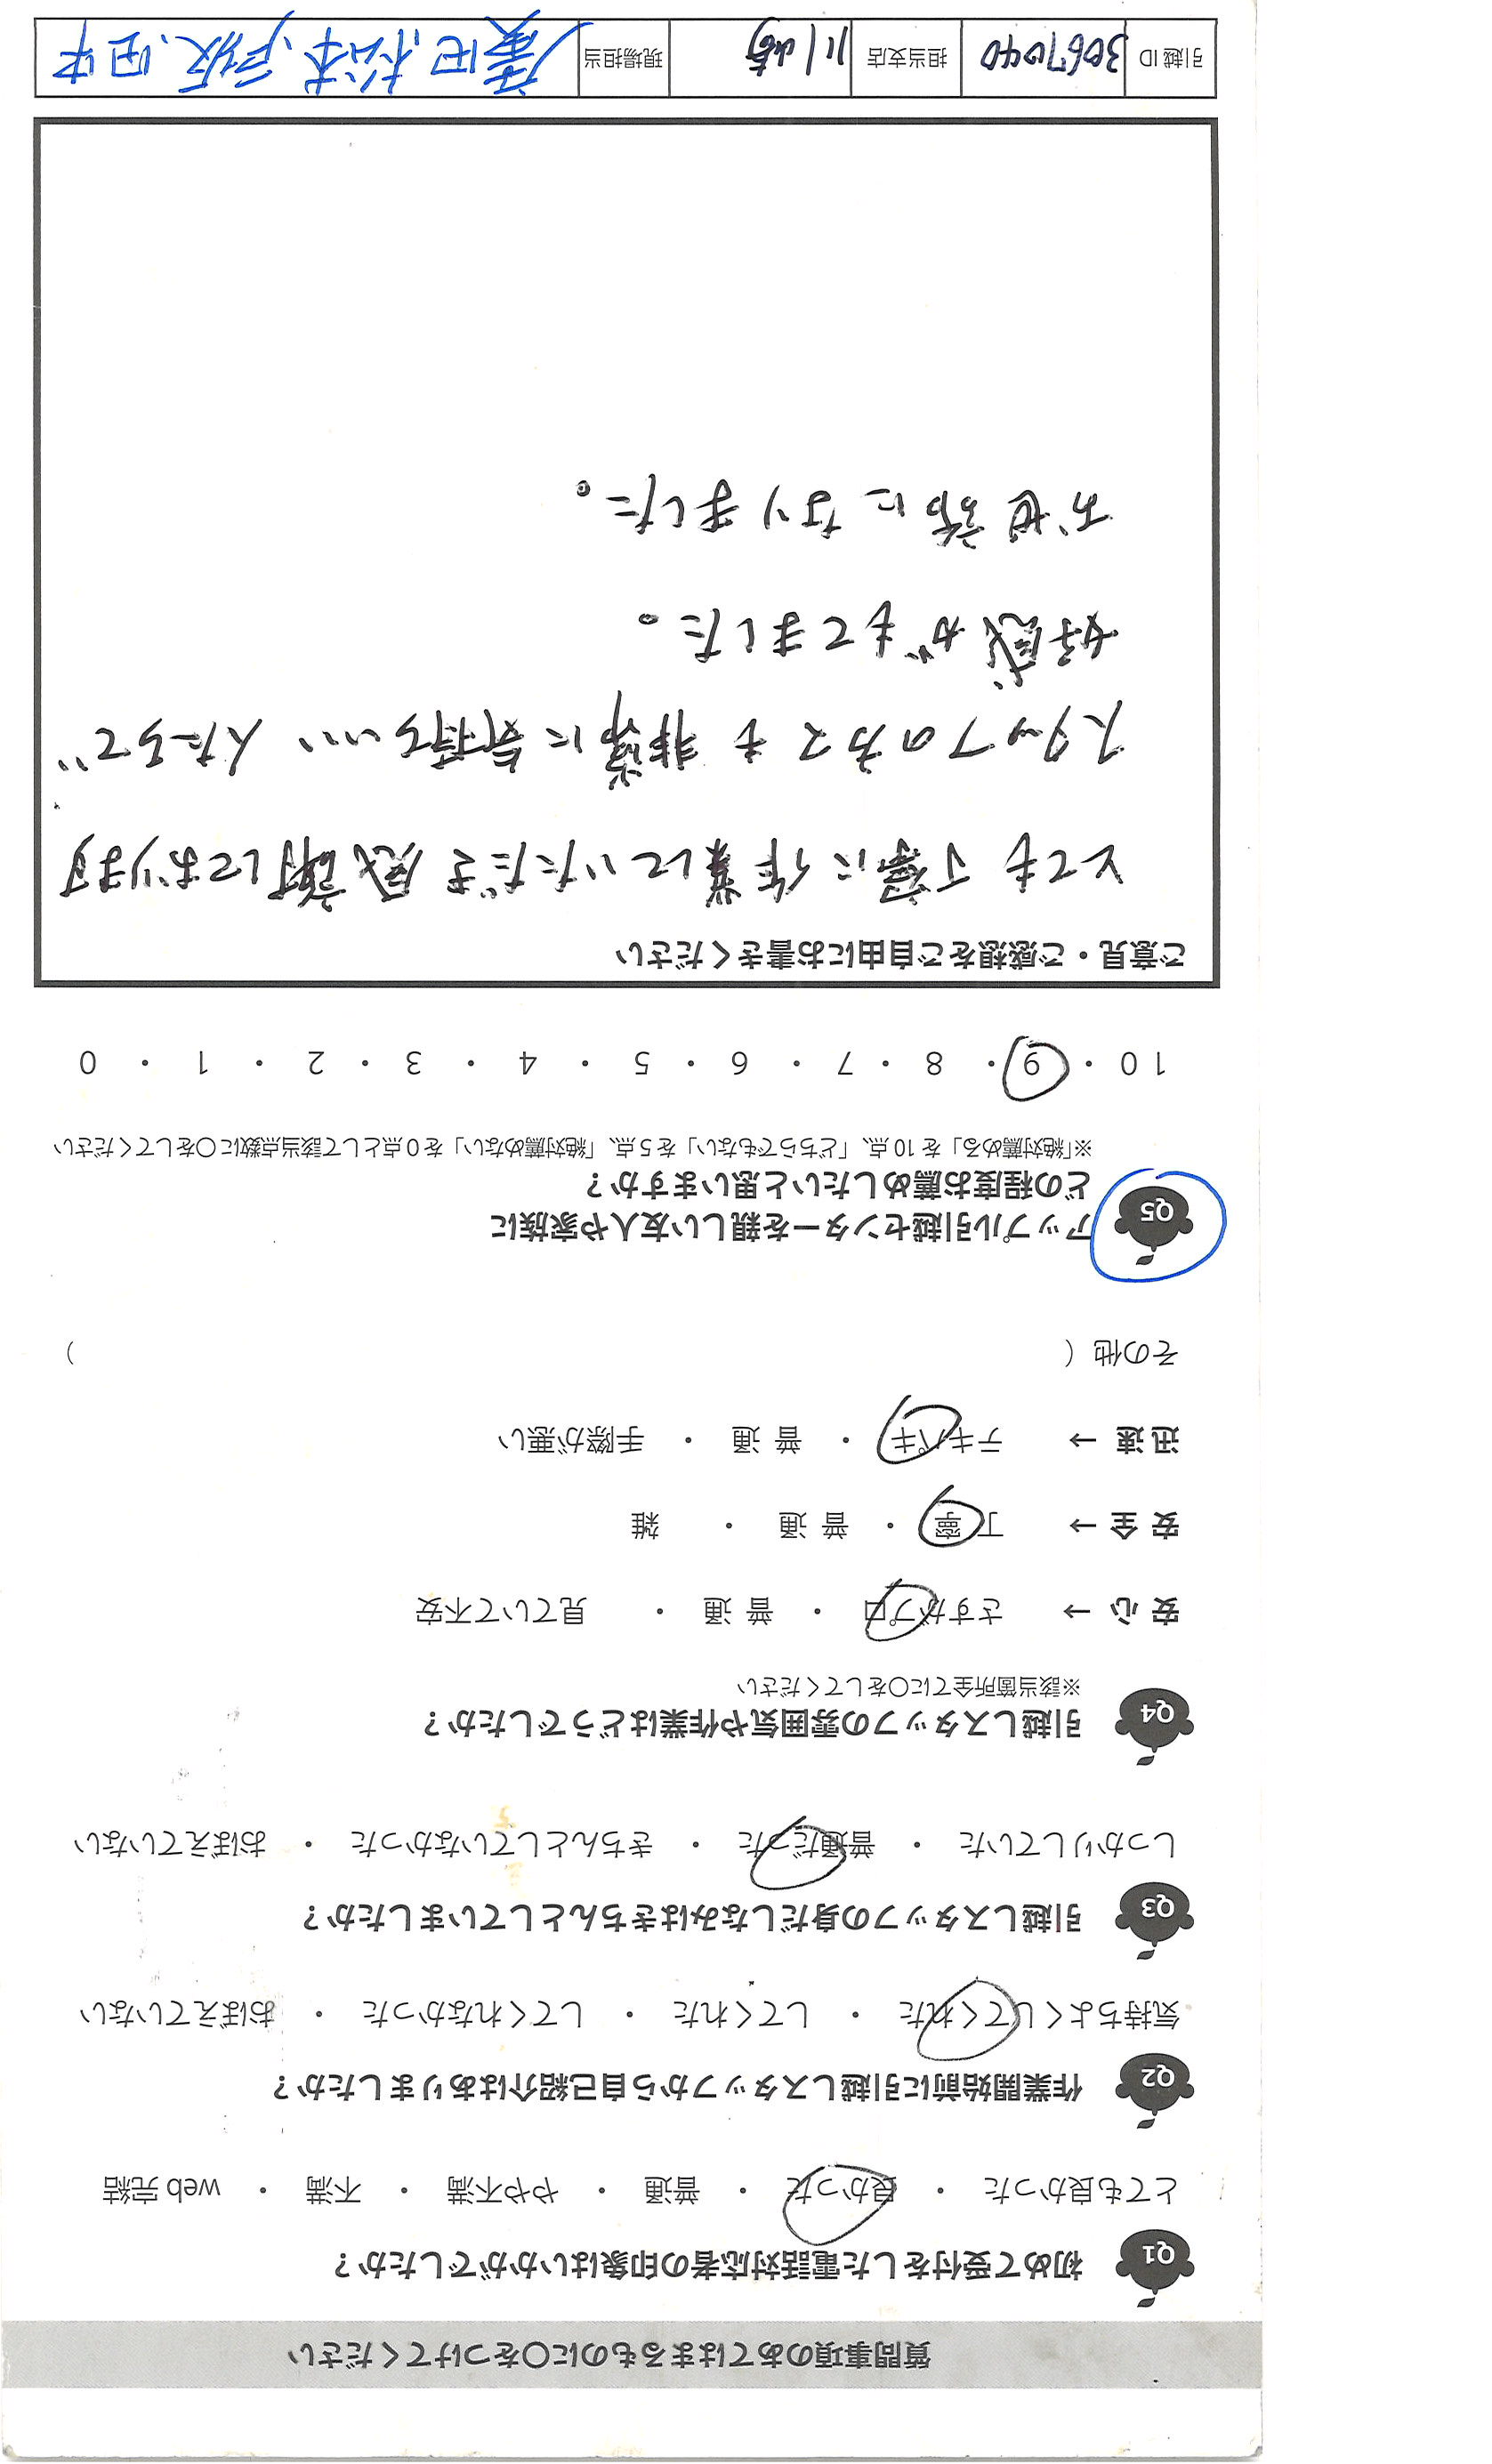 質問事項のあてはまるものに○をつけてください
Q1 初めて受付をした電話対応者の印象はいかがでしたか?
とても良かった ・ 良かった ・ 普通 ・ やや不満 ・ 不満 ・ web 完結
Q2 作業開始前に引越しスタッフから自己紹介はありましたか?
気持ちよくしてくれた ・ してくれた ・ してくれなかった ・ おぼえていない
Q3 引越しスタッフの身だしなみはきちんとしていましたか?
しっかりしていた ・ 普通だった ・ きちんとしていなかった ・ おぼえていない
Q4 引越しスタッフの雰囲気や作業はどうでしたか?
※該当箇所全てに○をしてください
安 心 → さすがプロ ・ 普 通 ・ 見ていて不安
安 全 → 丁 寧 ・ 普 通 ・ 雑
迅 速 → テキパキ ・ 普 通 ・ 手際が悪い
その他 ( )
Q5 アップル引越センターを親しい友人や家族に
どの程度お薦めしたいと思いますか?
※「絶対薦める」を 10 点、「どちらでもない」を 5 点、「絶対薦めない」を 0 点として該当点数に○をしてください
10 ・ 9 ・ 8 ・ 7 ・ 6 ・ 5 ・ 4 ・ 3 ・ 2 ・ 1 ・ 0
ご意見・ご感想をご自由にお書きください
とても丁寧に作業していただき感謝しております
スタッフの方々も非常に気持ちいい人たちで
好感がもてました。
お世話になりました。
引越 ID 30671040 担当支店 川崎 現場担当 廣田、松本、戸坂、田中